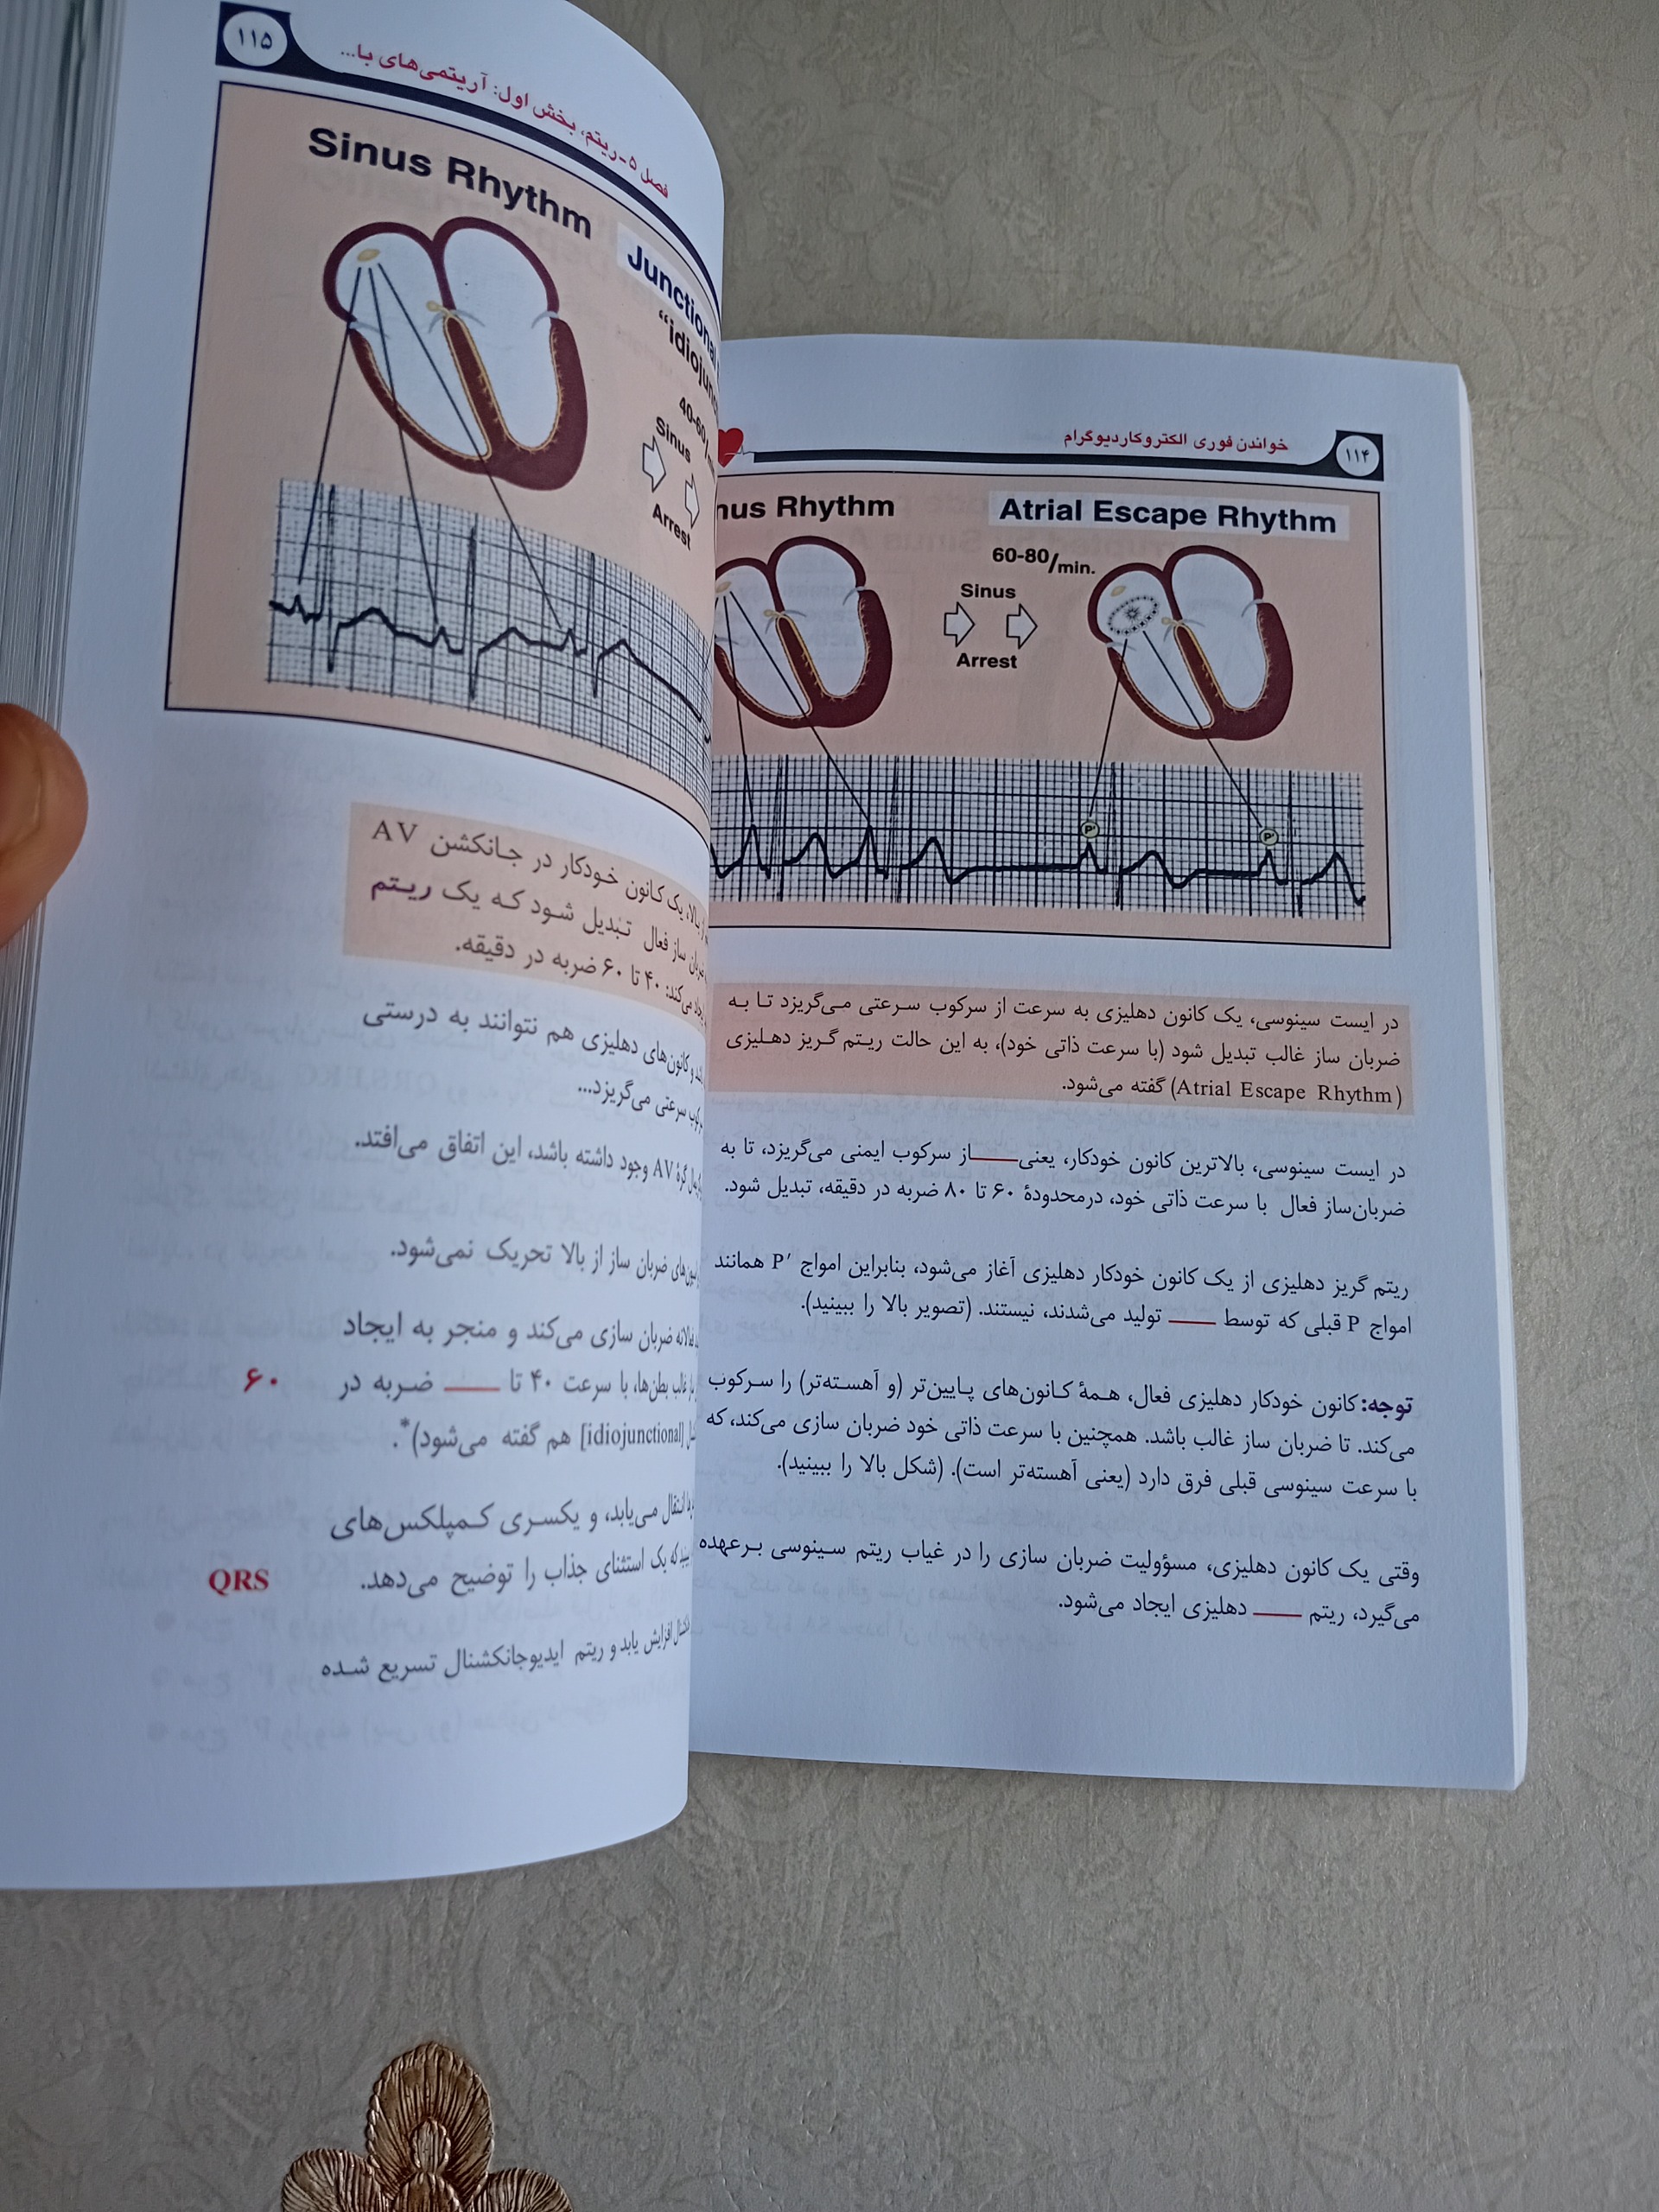 ۱۱۴
خواندن فوری الکتروکاردیوگرام
Rhythm
Atrial Escape Rhythm
60-80/min.
Sinus
Arrest
P'
P'
در ایست سینوسی، یک کانون دهلیزی به سرعت از سرکوب سرعتی می‌گریزد تا به
ضربان ساز غالب تبدیل شود (با سرعت ذاتی خود)، به این حالت ریتم گریز دهلیزی
(Atrial Escape Rhythm) گفته می‌شود.
در ایست سینوسی، بالاترین کانون خودکار، یعنی ____ از سرکوب ایمنی می‌گریزد، تا به
ضربان‌ساز فعال با سرعت ذاتی خود، درمحدودهٔ ۶۰ تا ۸۰ ضربه در دقیقه، تبدیل شود.
ریتم گریز دهلیزی از یک کانون خودکار دهلیزی آغاز می‌شود، بنابراین امواج P′ همانند
امواج P قبلی که توسط ____ تولید می‌شدند، نیستند. (تصویر بالا را ببینید).
توجه: کانون خودکار دهلیزی فعال، همهٔ کانون‌های پایین‌تر (و آهسته‌تر) را سرکوب
می‌کند. تا ضربان ساز غالب باشد. همچنین با سرعت ذاتی خود ضربان سازی می‌کند، که
با سرعت سینوسی قبلی فرق دارد (یعنی آهسته‌تر است). (شکل بالا را ببینید).
وقتی یک کانون دهلیزی، مسؤولیت ضربان سازی را در غیاب ریتم سینوسی برعهده
می‌گیرد، ریتم ____ دهلیزی ایجاد می‌شود.
۱۱۵
فصل ۵-ریتم، بخش اول: آریتمی‌های با...
Sinus Rhythm
Junctional
40-60
Sinus
Arrest
بالا، یک کانون خودکار در جانکشن AV
ساز فعال تبدیل شود که یک ریتم
می‌کند: ۴۰ تا ۶۰ ضربه در دقیقه.
و کانون‌های دهلیزی هم نتوانند به درستی
سرعتی می‌گریزد...
گرهٔ AV وجود داشته باشد، این اتفاق می‌افتد.
ضربان ساز از بالا تحریک نمی‌شود.
ضربان سازی می‌کند و منجر به ایجاد
غالب بطن‌ها، با سرعت ۴۰ تا ____ ضربه در ۶۰
[idiojunctional] هم گفته می‌شود)*.
انتقال می‌یابد، و یکسری کمپلکس‌های
که یک استثنای جذاب را توضیح می‌دهد. QRS
افزایش یابد و ریتم ایدیوجانکشنال تسریع شده